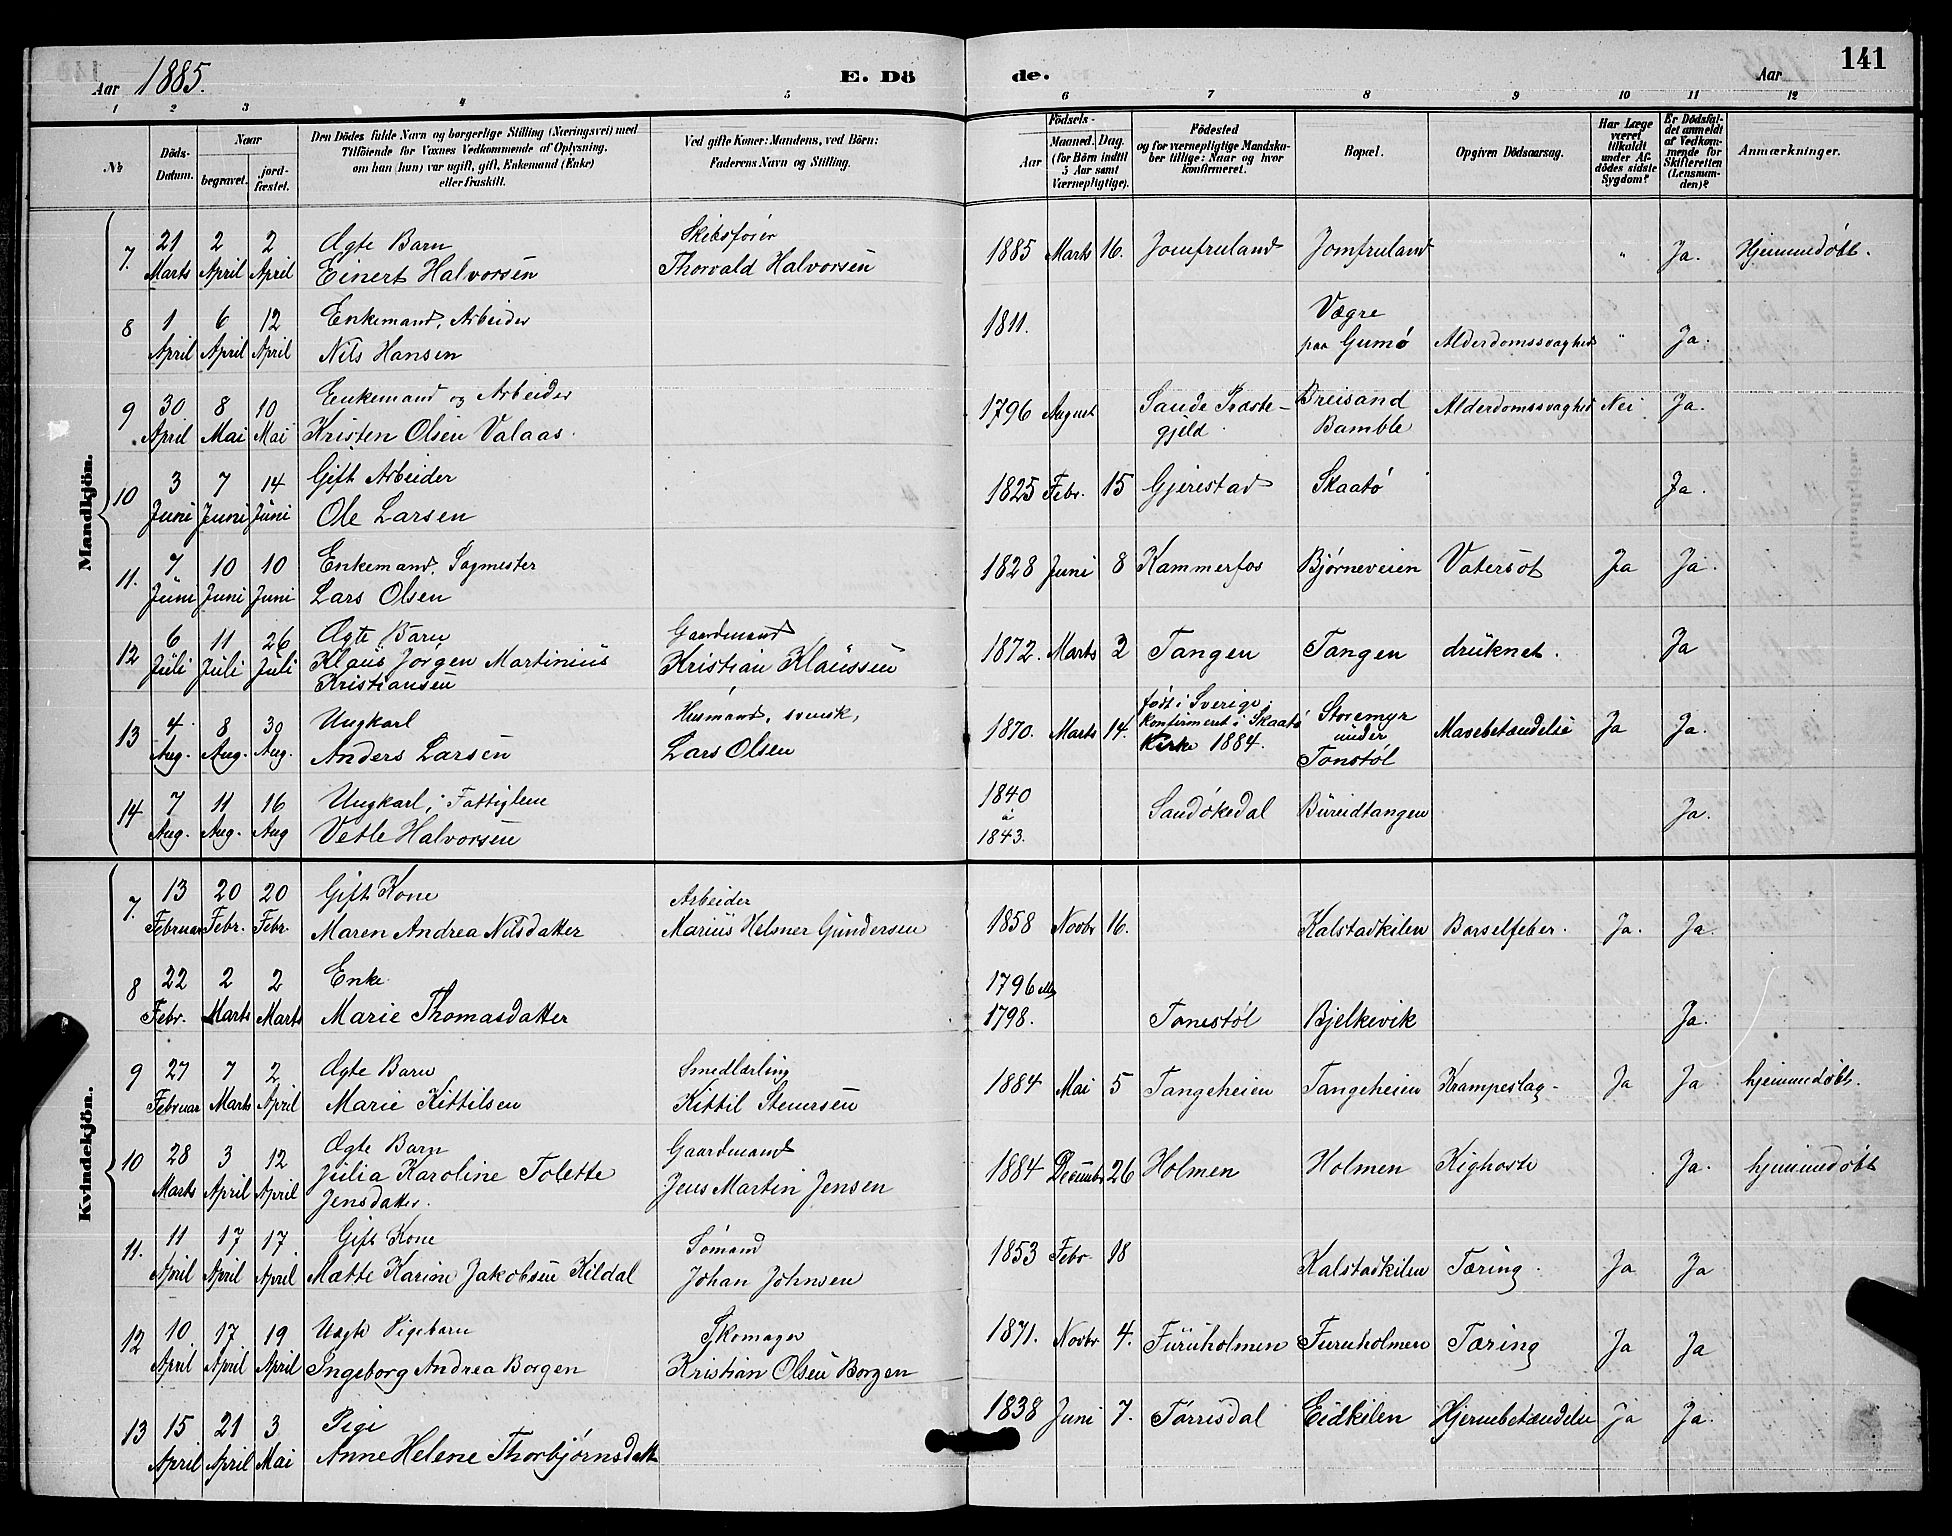 Aar 1885. E. Dö de. Aar 141
1 2 3 4 5 6 7 8 9 10 11 12
Nr. Döds-Datum. Naar begravet. jordfæstet. Den Dödes fulde Navn og borgerlige Stilling (Næringsvei) med Tilföiende for Voxnes Vedkommende af Oplysning, om han (hun) var ugift, gift, Enkemand (Enke) eller fraskilt. Ved gifte Koner: Mandens, ved Börn: Faderens Navn og Stilling. Födsels- Aar Maaned. Dag. (for Börn indtil 5 Aar samt Værnepligtige). Födested og for værnepligtige Mandskaber tillige: Naar og hvor konfirmeret. Bopæl. Opgiven Dödsaarsag. Har Læge været tilkaldt under Afdödes sidste Sygdom? Er Dödsfaldet anmeldt af Vedkommende for Skifteretten (Lensmanden)? Anmærkninger.
Mandkjön.
7. 21 Marts 2 April 2 April Ægte Barn Einert Halvorsen Skibsfører Thorvald Halvorsen 1885 Marts 16. Jomfruland Jomfruland " Ja. Hjemmedøbt.
8 1 April 6 April 12 April Enkemand, Arbeider Nils Hansen 1811. Vægre paa Gumø Alderdomssvaghed " Ja.
9 30 April 8 Mai 10 Mai Enkemand og Arbeider Kristen Olsen Valaas. 1796 August Saude Præste-gjeld. Breisand Bamble Alderdomssvaghed Nei Ja.
10 3 Juni 7 Juni 14 Juni Gift Arbeider Ole Larsen 1825 Febr. 15 Gjerestad Skaatø Ja.
11. 7 Juni 10 Juni 10 Juni Enkemand, Sagmester Lars Olsen 1828 Juni 8 Kammerfos Bjørneveien Vatersot Ja Ja.
12 6 Juli 11 Juli 26 Juli Ægte Barn Klaus Jørgen Martinius Kristiansen Gaardmand Kristian Klaussen 1872. Marts 2 Tangen Tangen druknet. Ja
13 4 Aug. 8 Aug. 30 Aug. Ungkarl Anders Larsen Husmand, svensk, Lars Olsen 1870. Marts 14. født i Sverige; konfirmeret i Skaatø Kirke 1884. Storemyr under Tonstøl Mavebetændelse Ja Ja.
14 7 Aug. 11 Aug. 16 Aug Ungkarl, Fattiglem Vetle Halvorsen 1840 à 1843. Sandøkedal Bureidtangen Ja.
Kvindekjön.
7. 13 Februar 20 Febr. 20 Febr. Gift Kone Maren Andrea Nilsdatter Arbeider Marius Helmer Gundersen 1858 Novbr 16. Kalstadkilen Barselfeber. Ja. Ja.
8 22 Febr. 2 Marts 2 Marts Enke Marie Thomasdatter 1796 1798. Tonstøl Bjelkevik Ja.
9 27 Februar 7 Marts 2 April Ægte Barn Marie Kittilsen Smedlærling Kittil Stenersen 1884 Mai 5 Tangeheien Tangeheien Krampeslag. Ja Ja hjemmedøbt.
10 28 Marts 3 April 12 April Ægte Barn Julia Karoline Tolette Jensdatter. Gaardmand Jens Martin Jensen 1884 Decembr 26 Holmen Holmen Kighoste Ja. hjemmedøbt
11. 11 April 17 April 17. April Gift Kone Mætte Karine Jakobsen Kildal Sømand Johan Johnsen 1853 Febr. 18 Kalstadkilen Tæring. Ja Ja
12 10 April 17 April 19 April Uægte Pigebarn Ingeborg Andrea Borgen Skomager Kristian Olsen Borgen 1871. Novbr 4. Furuholmen Furuholmen Tæring Ja Ja
13 15 April 21 April 3 Mai Pige Anne Helene Thorbjørnsdatt 1838 Juni 7. Tørrisdal Eidkilen Hjernebetændelse Ja Ja.